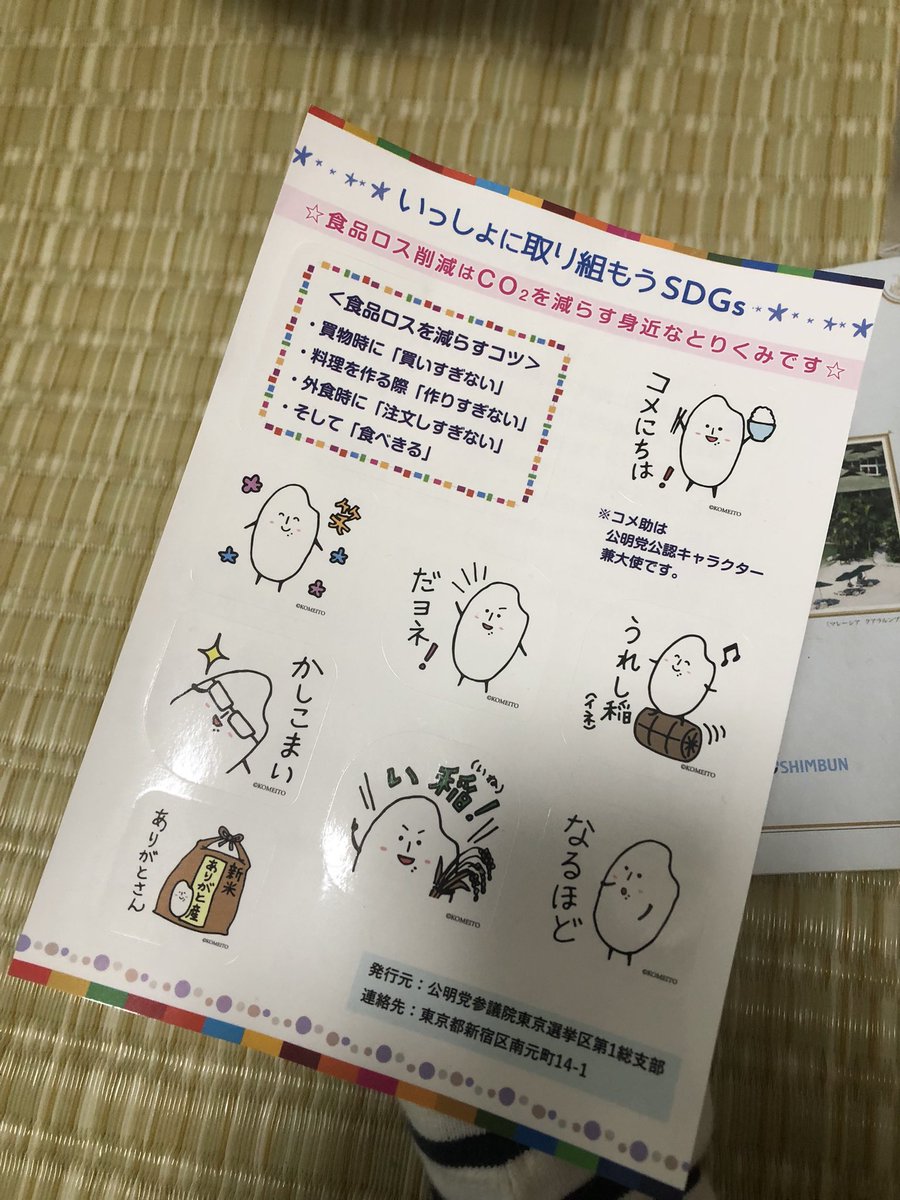 いっしょに取り組もうSDGs
☆食品ロス削減はCO₂を減らす身近なとりくみです☆
＜食品ロスを減らすコツ＞
・買物時に「買いすぎない」
・料理を作る際「作りすぎない」
・外食時に「注文しすぎない」
・そして「食べきる」
コメにちは！
©KOMEITO
※コメ助は
公明党公認キャラクター
兼大使です。
笑
©KOMEITO
だヨネ！
©KOMEITO
うれし稲
（イネ）
©KOMEITO
かしこまい
©KOMEITO
い稲！
（いね）
©KOMEITO
なるほど
©KOMEITO
ありがとさん
新米
ありがと産
©KOMEITO
発行元：公明党参議院東京選挙区第1総支部
連絡先：東京都新宿区南元町14-1
SHIMBUN